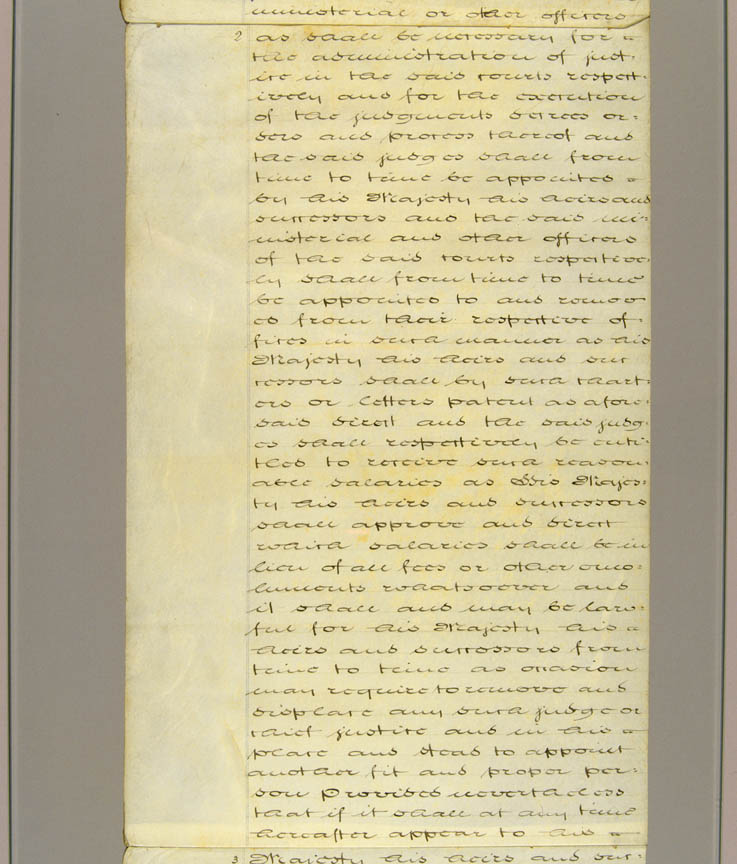 ministerial or other officers
2 as shall be necessary for
the administration of just:
ice in the said courts respect:
ively and for the execution
of the judgments decrees or:
ders and process thereof and
the said judges shall from
time to time be appointed
by his Majesty his heirs and
successors and the said mi:
nisterial and other officers
of the said courts respective:
ly shall from time to time
be appointed to and remov
ed from their respective of
fices in such manner as his
Majesty his heirs and suc
cessors shall by such chart:
ers or letters patent as afore:
said direct and the said judg:
es shall respectively be enti:
tled to receive such reason:
able salaries as His Majes:
ty his heirs and successors
shall approve and direct
which salaries shall be in
lieu of all fees or other emo:
luments whatsoever and
it shall and may be law:
ful for his Majesty his
heirs and successors from
time to time as occasion
may require to remove and
displace any such judge or
chief justice and in his
place and stead to appoint
another fit and proper per:
son Provided nevertheless
that if it shall at any time
hereafter appear to his
3 Majesty his heirs and suc: